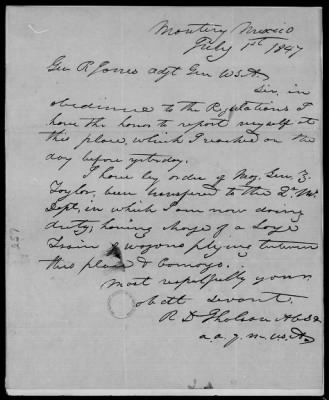 Monterey Mexico
July 1st 1847
Gen R Jones adjt Gen U.S.A
Sir, in
obedience to the Regulations I
have the honor to report myself at
this place, which I reached on the
day before yesterday.
I have by order of Maj. Gen. Z.
Taylor, been transferred to the Qr. Mr.
Dept, in which I am now doing
duty; having charge of a large
Train of wagons plying between
this place & Camargo.
Most respectfully yours
obdt servant.
R D Gholson
a. a. q. m. U.S.A